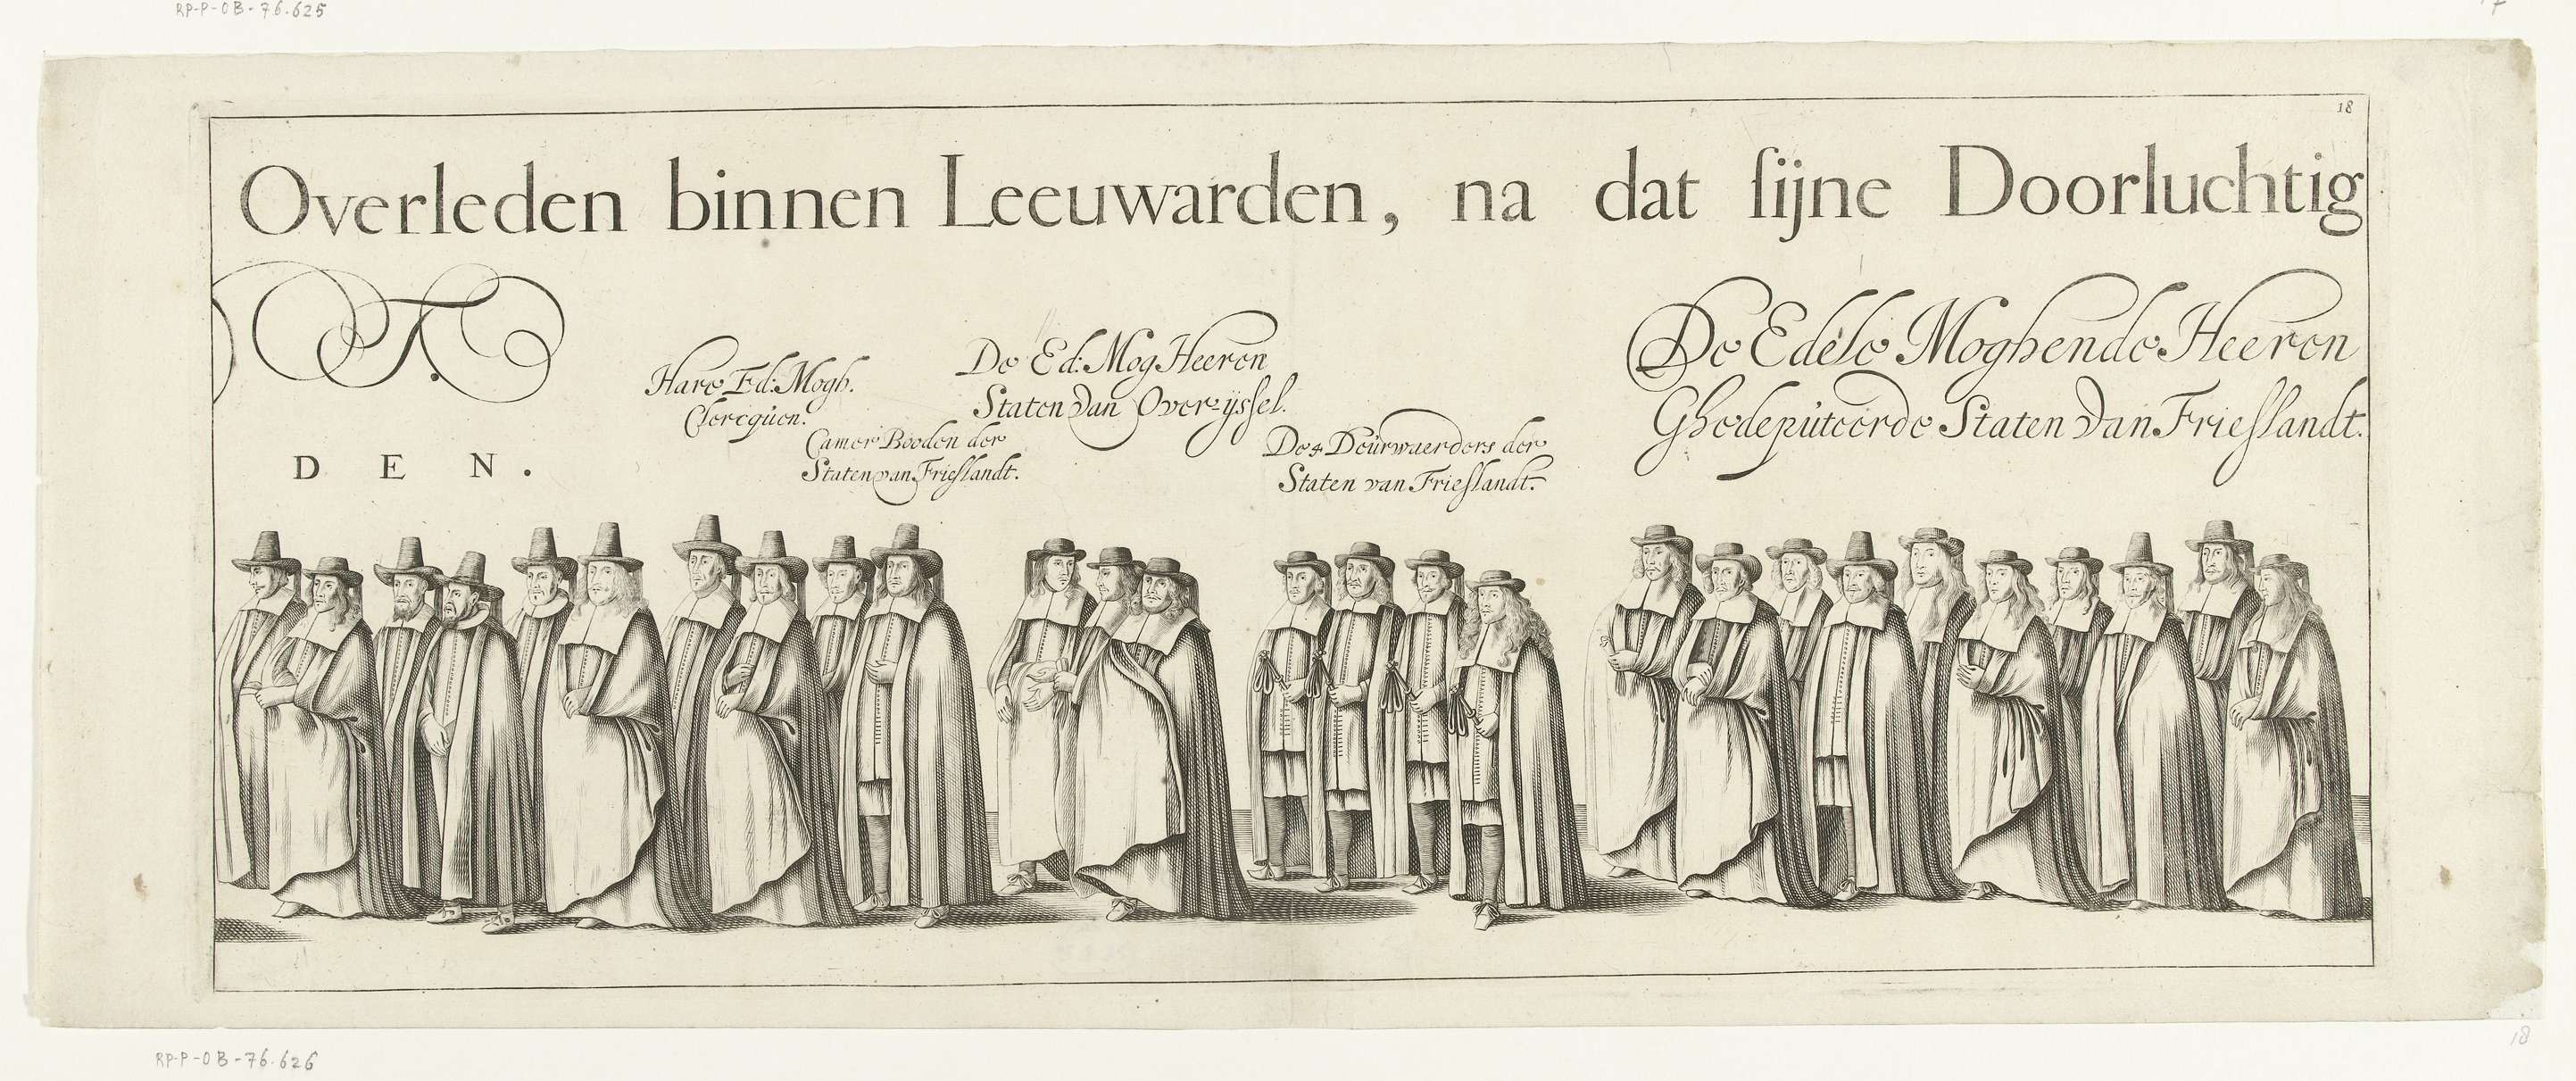 RP-P-OB-76.625
18
Overleden binnen Leeuwarden, na dat ſijne Doorluchtig
T.
DEN.
Hare Ed: Mogh.
Clercquen.
Camer Booden der
Staten van Frieſlandt.
De Ed: Mog Heeren
Staten van Over-ijsſel.
De 4 Deurwaerders der
Staten van Frieſlandt.
De Edele Moghende Heeren
Ghedeputeerde Staten van Frieſlandt.
RP-P-OB-76.626
18